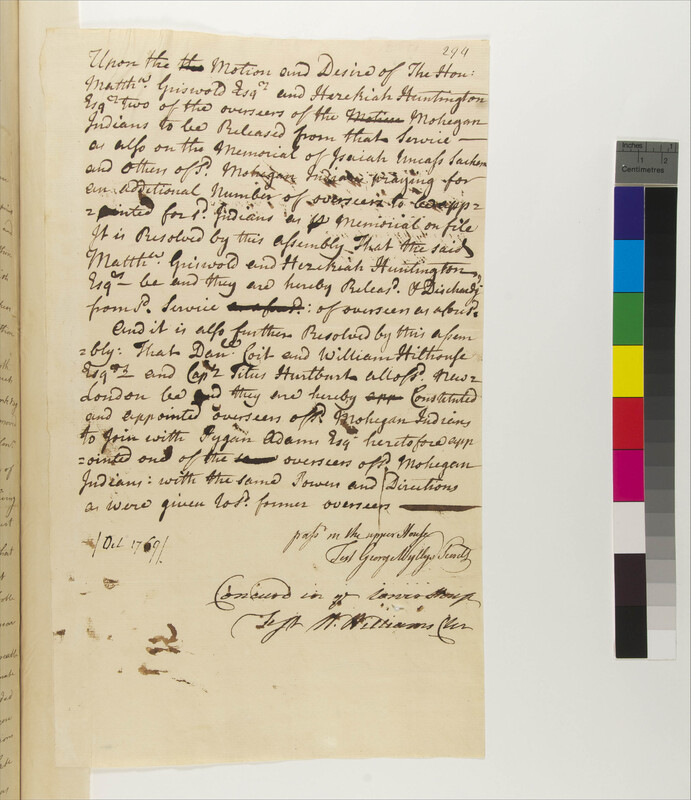 294
Upon the the Motion and Desire of The Hon:
Matthw. Griswold Esqr and Hezekiah Huntington
Esqr two of the overseers of the Motion Mohegan
Indians to be Released from that Service —
as also on the Memorial of Isaiah Uncass Sachem
and others of sd. Mohegan Indians praying for
an additional Number of overseers to be app=
=ointed for sd. Indians as pr Memorial on file
It is Resolved by this assembly That the said
Matthw. Griswold and Hezekiah Huntington
Esqrs — be and they are hereby Releasd. & Dischargd
from sd. Service as afsd.: of overseers as aforesd.
And it is also further Resolved by this assem
=bly: That Danl. Coit and William Hilhouse
Esqrs and Capt Titus Hurlburt all of sd. New=
London be and they are hereby app Constituted
and appointed overseers of sd. Mohegan Indians
to Join with Pygan Adams Esqr heretofore app
=ointed one of the overseers of sd. Mohegan
Indians: with the same Powers and Directions
as were given to sd. former overseers
/Oct. 1769/
passd in the upper House
Test George Wyllys Secrety
Concurd in ye Lower House
Test W. Williams Clr
Inches 1 2
Centimetres